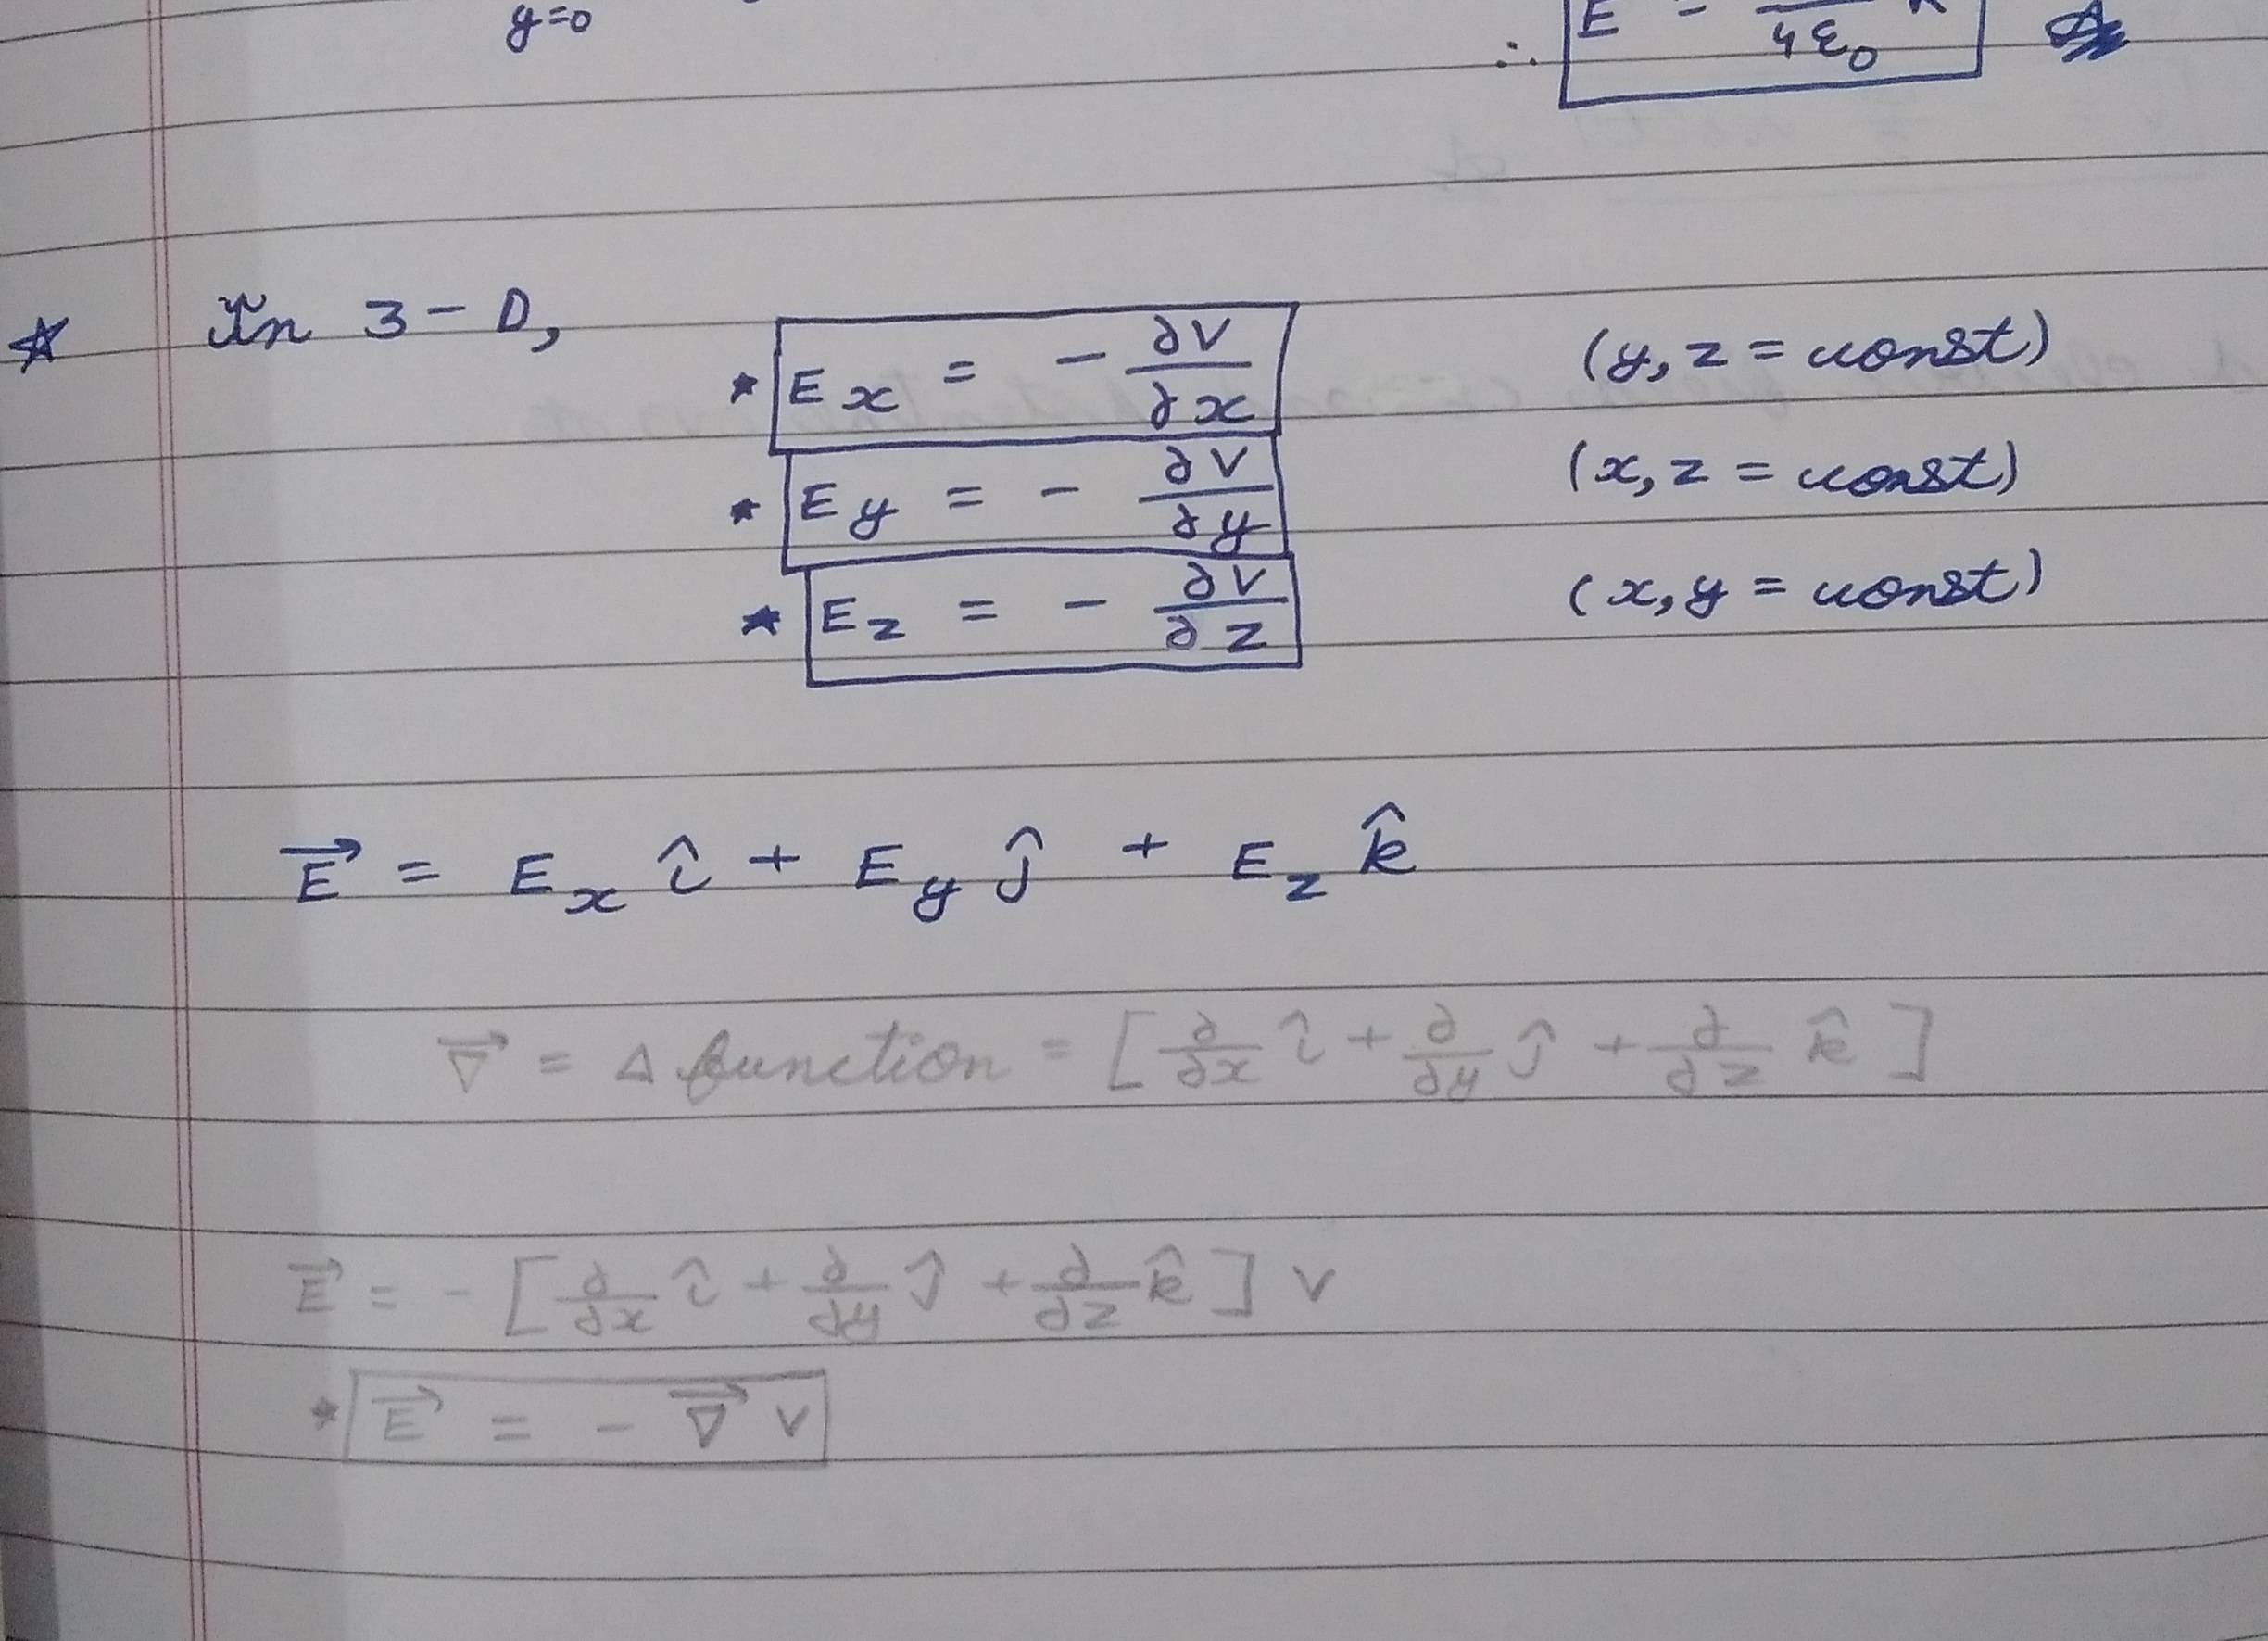 y=0
∴ E = / 4ε₀
☆ In 3-D,
* Ex = - ∂V/∂x (y, z = const)
* Ey = - ∂V/∂y (x, z = const)
* Ez = - ∂V/∂z (x, y = const)
E⃗ = Ex î + Ey ĵ + Ez k̂
∇⃗ = Δ function = [∂/∂x î + ∂/∂y ĵ + ∂/∂z k̂]
E⃗ = - [∂/∂x î + ∂/∂y ĵ + ∂/∂z k̂] V
* E⃗ = - ∇⃗ V